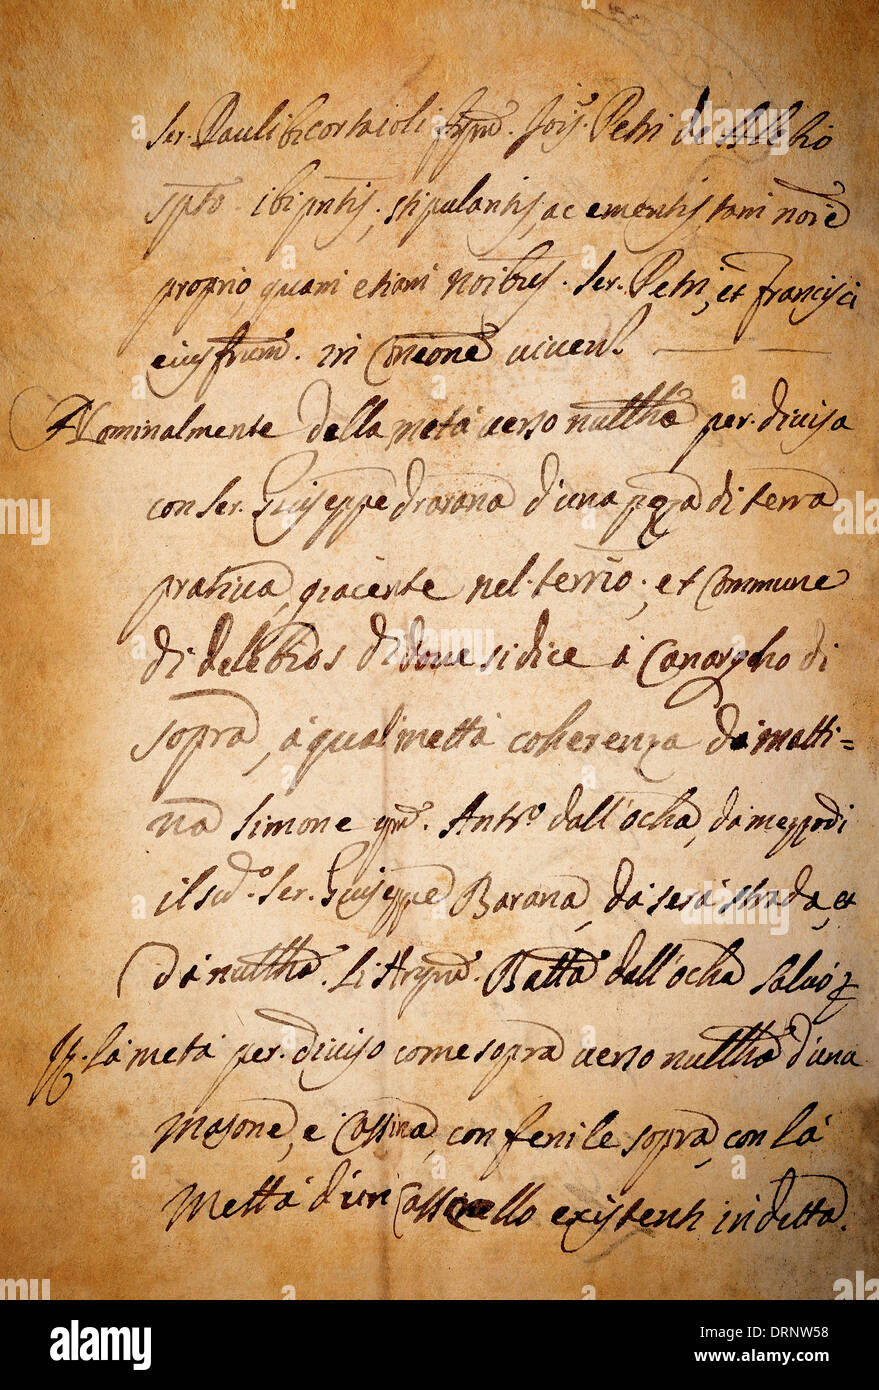 Ser. Pauli bicornaioli qm̃. Joīs. Petri de
spto. ibi pntis, stipulantis, ac ementis, tam noīe
proprio, quam etiam noībus. Ser. Petri, et Francisci
eius frum. in Cōnione viven.
Nominalmente della metà verso nullhã per. diviso
con Ser. Giuseppe d'una pezza di terra
prativa, giacente nel. terrio, et Commune
di delebios di dove si dice à Canargho di
sopra, à qual mettà coherenza da matti=
na Simone qm̃. Antº. dall'ocha, da mezzodi
il sudº. Ser. Giuseppe Barana, da sera strada, et
da nullhã. li Hr qm̃. Battã dall'ocha Salvo
It. la metà per. diviso come sopra verso nullhã d'una
Masone, e Cassina, con fenile sopra, con la
Mettà d'un existenti in detta.
alamy
Image ID: DRNW58
www.alamy.com